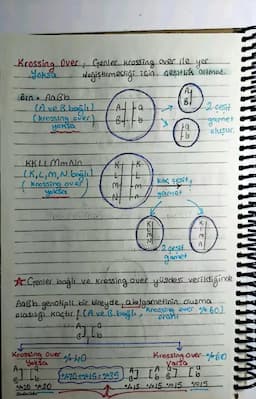 Krossing Over, Genler krossing over ile yer
Yoksa değiştirmediği için çeşitlilik olmaz.
Örn. AaBb
(A ve B bağlı)
(krossing over
yoksa
A a
B b
A
B
a
b
2 çeşit
gamet
oluşur.
KKLLMmNn
(K, L, m, N bağlı)
(krossing over
yoksa
K K
L L
M m
N n
Kaç çeşit
gamet
K
L
M
N
K
L
m
n
2 çeşit
gamet
Genler bağlı ve krossing over yüzdesi verildiğinde
AaBb genotipli bir bireyde, gametinin oluşma
olasılığı kaçtır? (A ve B bağlı, krossing over %60)
oranı
A a
B b
Krossing over %40
Yoksa
Krossing over %60
varsa
A a
B b
%20+%15=%35
A a A a
B b b B
%20 %20
%15 %15 %15 %15